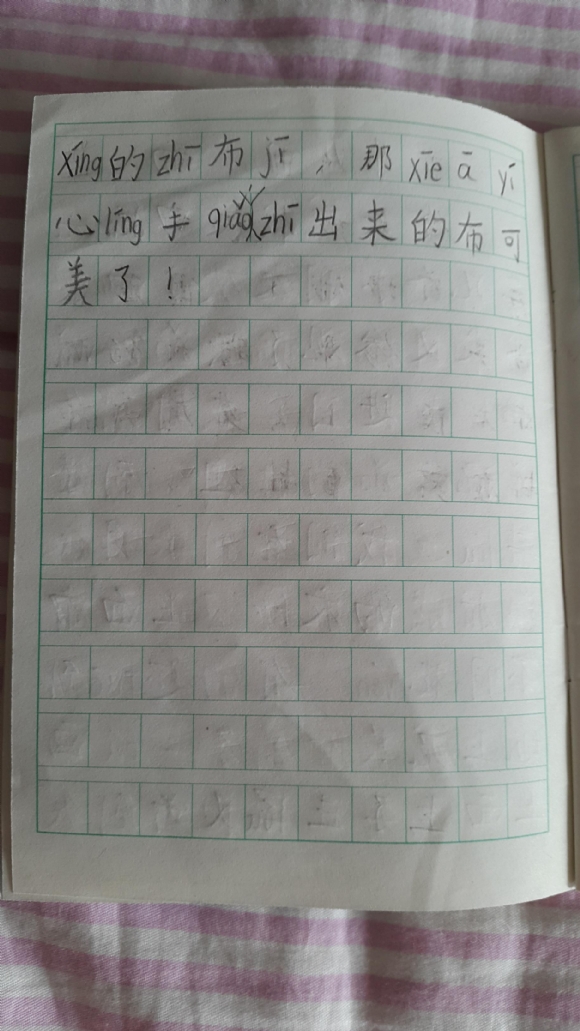 xīng的zhī布jī，那xīeāyí
心líng手qiǎozhī出来的布可
美了！